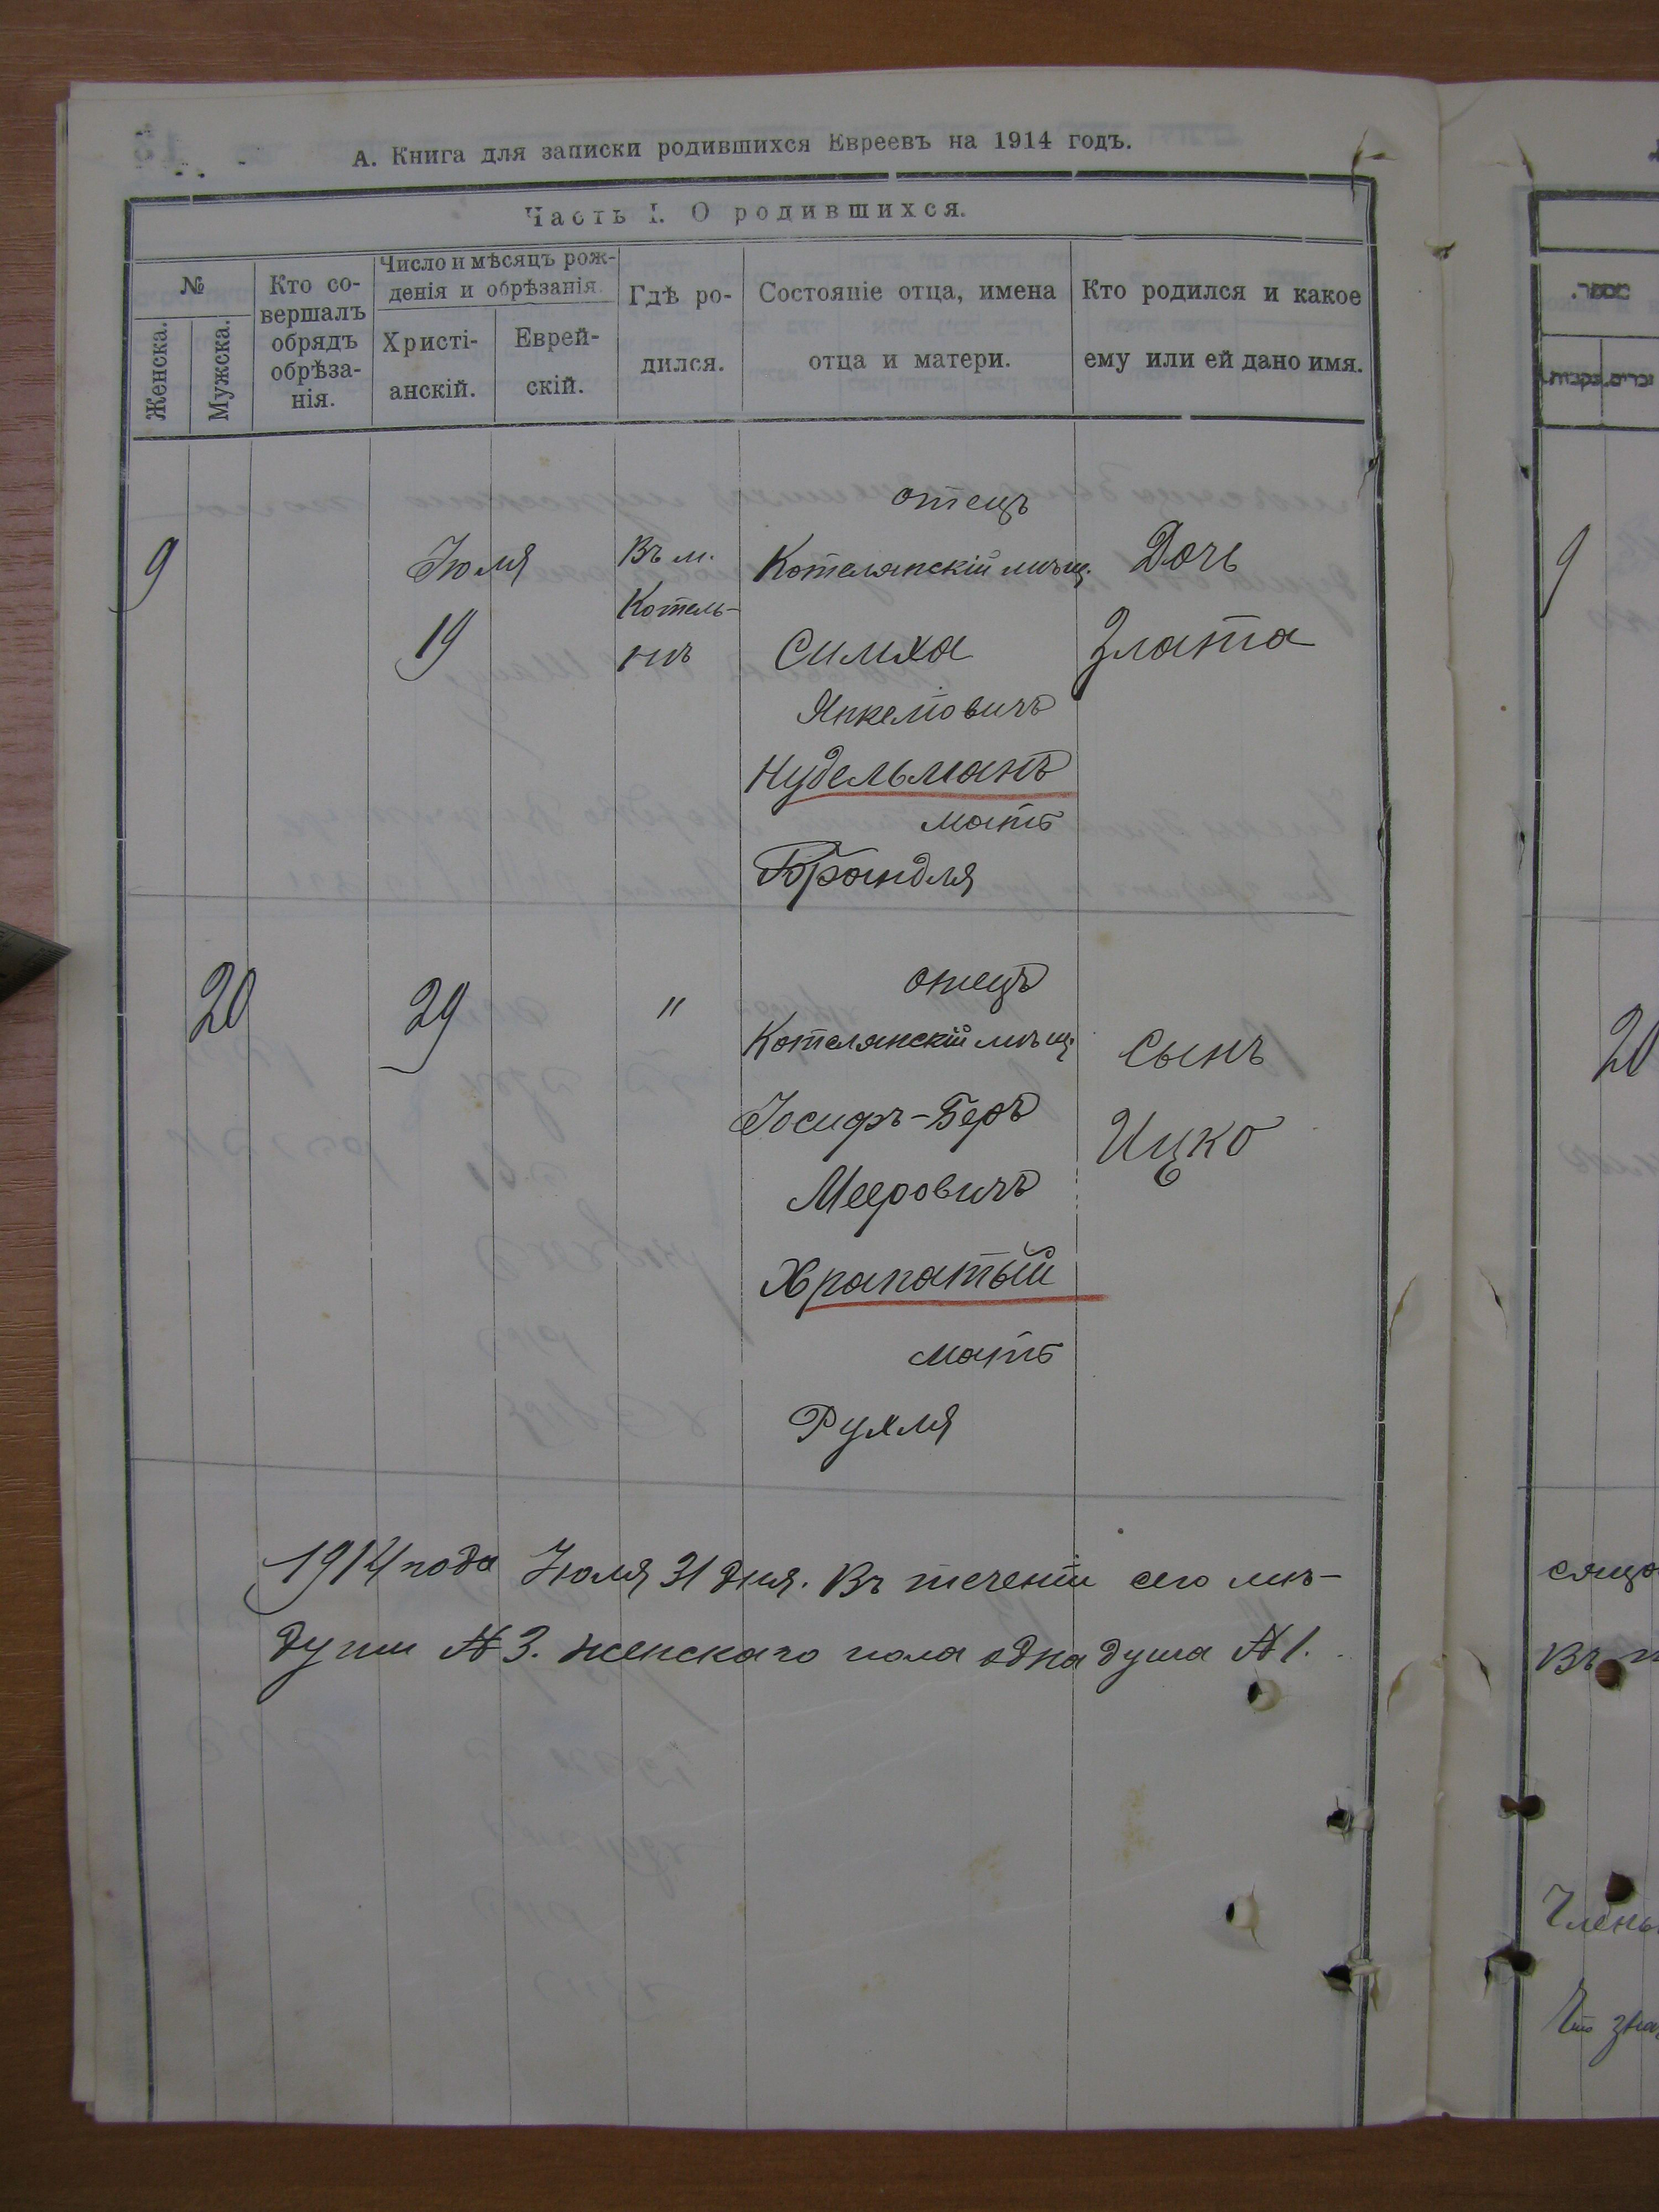 А. Книга для записки родившихся Евреевъ на 1914 годъ.
Часть I. О родившихся.
№
Женска.
Мужска.
Кто со-
вершалъ
обрядъ
обрѣза-
нія.
Число и мѣсяцъ рож-
денія и обрѣзанія.
Христі-
анскій.
Еврей-
скій.
Гдѣ ро-
дился.
Состояніе отца, имена
отца и матери.
Кто родился и какое
ему или ей дано имя.
9
Іюля
19
Въ м.
Котель-
нѣ
отецъ
Котелянскій мѣщ.
Симха
Янкелiовичъ
Нудельманъ
мать
Брандля
Дочь
Злата
20
29
"
отецъ
Котелянскій мѣщ.
Іосифъ-Беръ
Мееровичъ
Храпатый
мать
Рухля
Сынъ
Ицко
1914 года Іюля 31 дня. Въ теченіи сего мѣ-
души № 3. женскаго пола одна душа № 1.
9
20
сяца
Въ
Члены